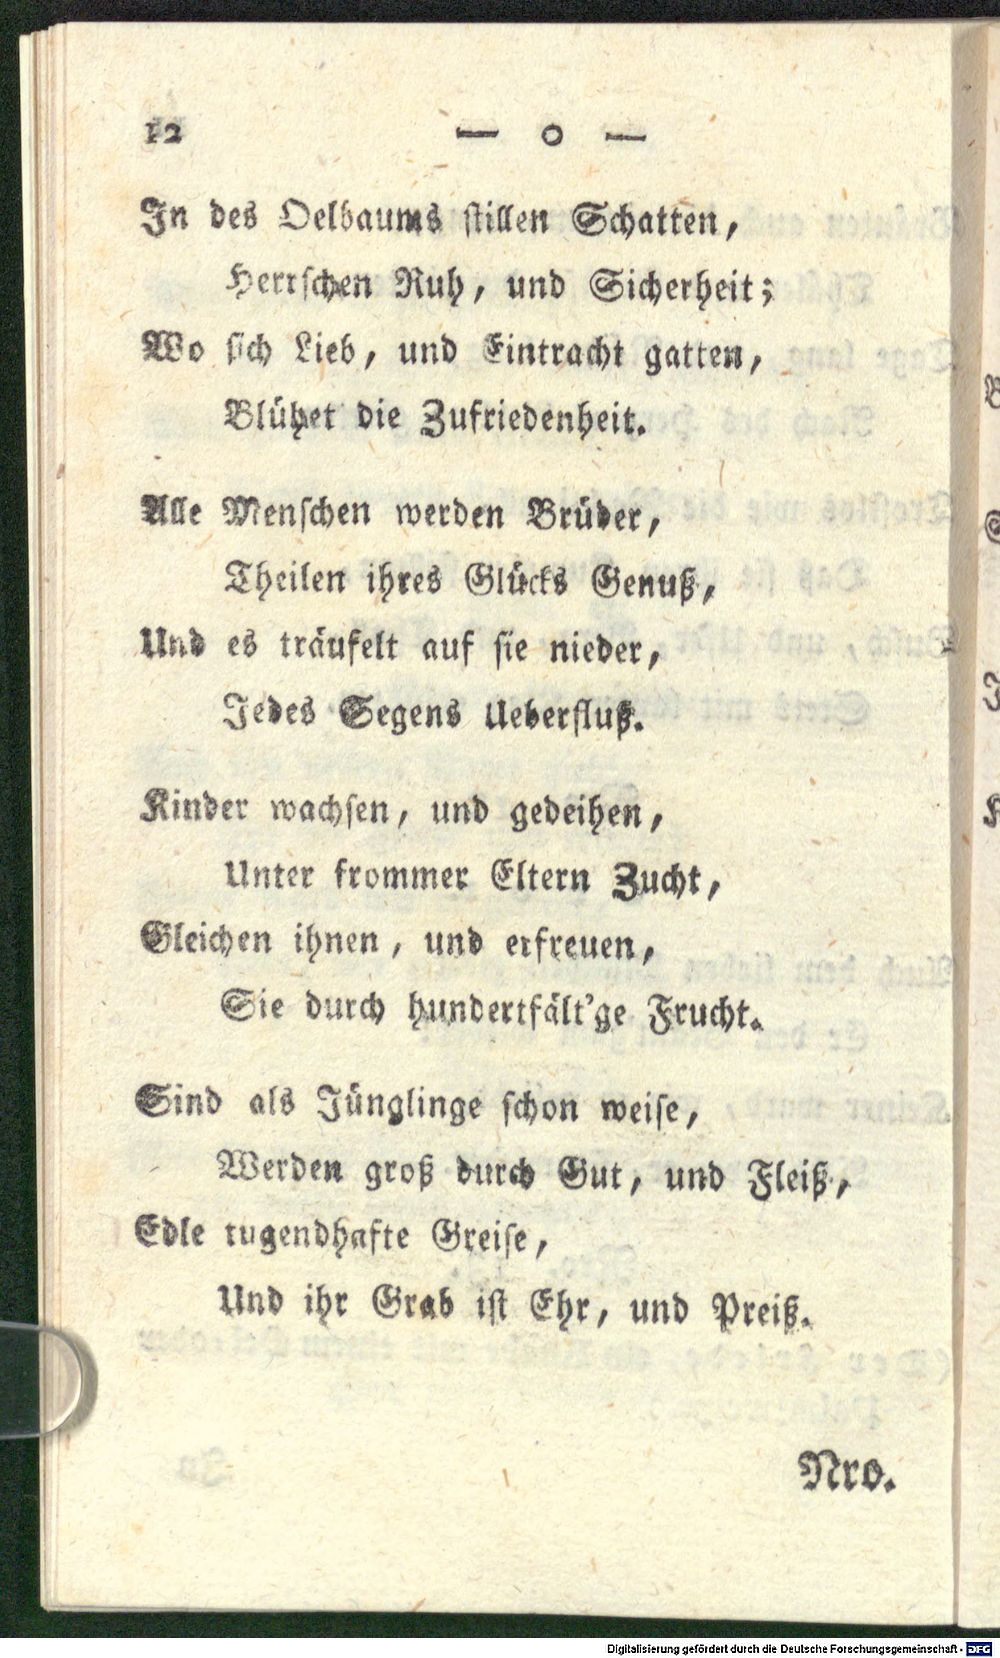 12 — o —
In des Oelbaums stillen Schatten,
Herrschen Ruh, und Sicherheit;
Wo sich Lieb, und Eintracht gatten,
Blühet die Zufriedenheit.
Alle Menschen werden Brüder,
Theilen ihres Glücks Genuß,
Und es träufelt auf sie nieder,
Jedes Segens Ueberfluß.
Kinder wachsen, und gedeihen,
Unter frommer Eltern Zucht,
Gleichen ihnen, und erfreuen,
Sie durch hundertfält'ge Frucht.
Sind als Jünglinge schon weise,
Werden groß durch Gut, und Fleiß,
Edle tugendhafte Greise,
Und ihr Grab ist Ehr, und Preiß.
Nro.
Digitalisierung gefördert durch die Deutsche Forschungsgemeinschaft - DFG